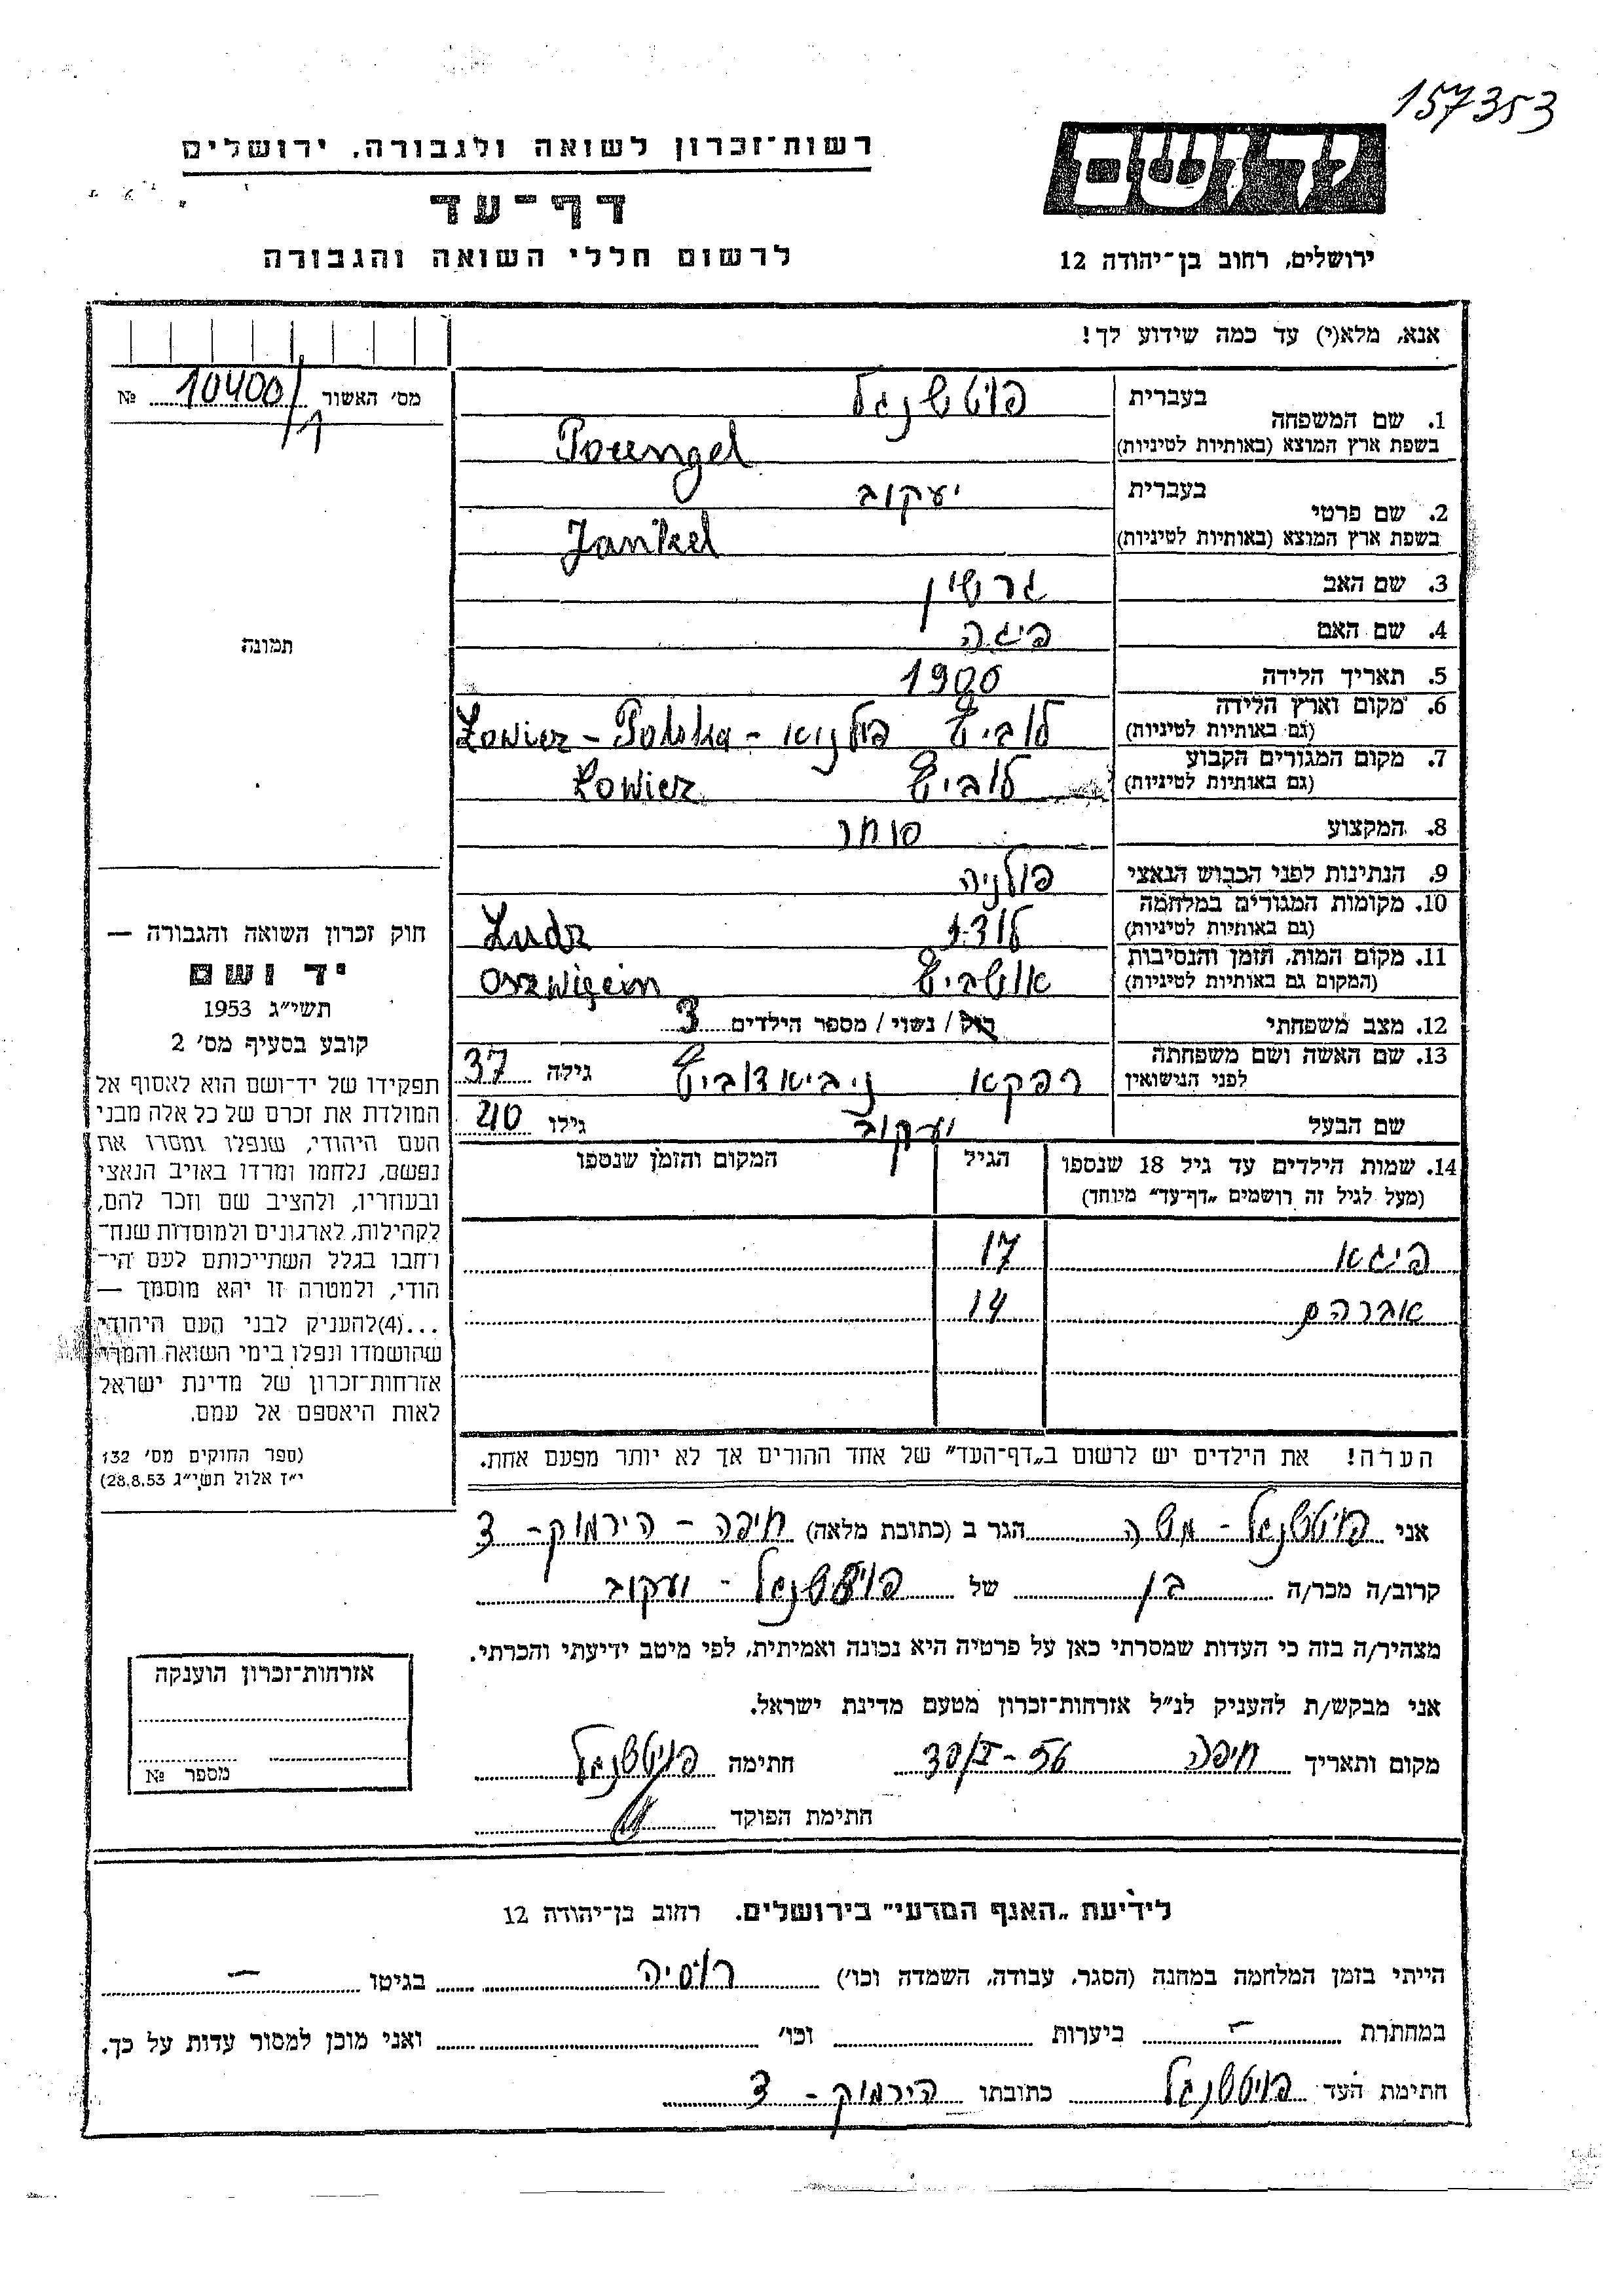 157353
יד ושם
רשות־זכרון לשואה ולגבורה. ירושלים
דף־עד
לרשום חללי השואה והגבורה
ירושלים, רחוב בן־יהודה 12
אנא, מלא(י) עד כמה שידוע לך!
מס׳ האשור 10400/1 №
תמונה
1. שם המשפחה
בעברית פויטשנגל
בשפת ארץ המוצא (באותיות לטיניות)
2. שם פרטי
בעברית יעקוב
בשפת ארץ המוצא (באותיות לטיניות) Jankel
3. שם האב גרשון
4. שם האם פיגה
5. תאריך הלידה 1900
6. מקום וארץ הלידה לוביטש פולניא - Łowicz - Polska
(גם באותיות לטיניות)
7. מקום המגורים הקבוע לוביטש Łowicz
(גם באותיות לטיניות)
8. המקצוע סוחר
9. הנתינות לפני הכבוש הנאצי פולניה
10. מקומות המגורים במלחמה לודז
(גם באותיות לטיניות)
11. מקום המות, הזמן והנסיבות
(המקום גם באותיות לטיניות)
12. מצב משפחתי רוק / נשוי / מספר הילדים 3
13. שם האשה ושם משפחתה רפקא גילה 37
לפני הנישואין
שם הבעל יעקוב גילו 40
14. שמות הילדים עד גיל 18 שנספו הגיל המקום והזמן שנספו
(מעל לגיל זה רושמים „דף־עד״ מיוחד)
פיגא 17
אברהם 14
הערה! את הילדים יש לרשום ב„דף־העד״ של אחד ההורים אך לא יותר מפעם אחת.
חוק זכרון השואה והגבורה —
יד ושם
תשי״ג 1953
קובע בסעיף מס׳ 2
תפקידו של יד־ושם הוא לאסוף אל
המולדת את זכרם של כל אלה מבני
העם היהודי, שנפלו ומסרו את
נפשם, נלחמו ומרדו באויב הנאצי
ובעוזריו, ולהציב שם וזכר להם,
לקהילות, לארגונים ולמוסדות שנח־
רחבו בגלל השתייכותם לעם הי־
הודי, ולמטרה זו יהא מוסמך —
...(4)להעניק לבני העם היהודי
שהושמדו ונפלו בימי השואה והמרי
אזרחות־זכרון של מדינת ישראל
לאות היאספם אל עמם.
(ספר החוקים מס׳ 132
י״ז אלול תשי״ג 28.8.53)
אני פויטשנגל - משה הגר ב (כתובת מלאה) חיפה - הירמוק - 3
קרוב/ה מכר/ה בן של פויטשנגל - יעקוב
מצהיר/ה בזה כי העדות שמסרתי כאן על פרטיה היא נכונה ואמיתית, לפי מיטב ידיעתי והכרתי.
אני מבקש/ת להעניק לנ״ל אזרחות־זכרון מטעם מדינת ישראל.
מקום ותאריך חיפה חתימה פויטשנגל
חתימת הפוקד
אזרחות־זכרון הוענקה
מספר №
לידיעת „האגף המדעי״ בירושלים. רחוב בן־יהודה 12
הייתי בזמן המלחמה במחנה (הסגר, עבודה, השמדה וכו׳) רוסיה בגיטו —
במחתרת — ביערות וכו׳ ואני מוכן למסור עדות על כך.
חתימת העד פויטשנגל כתובתו הירמוק - 3